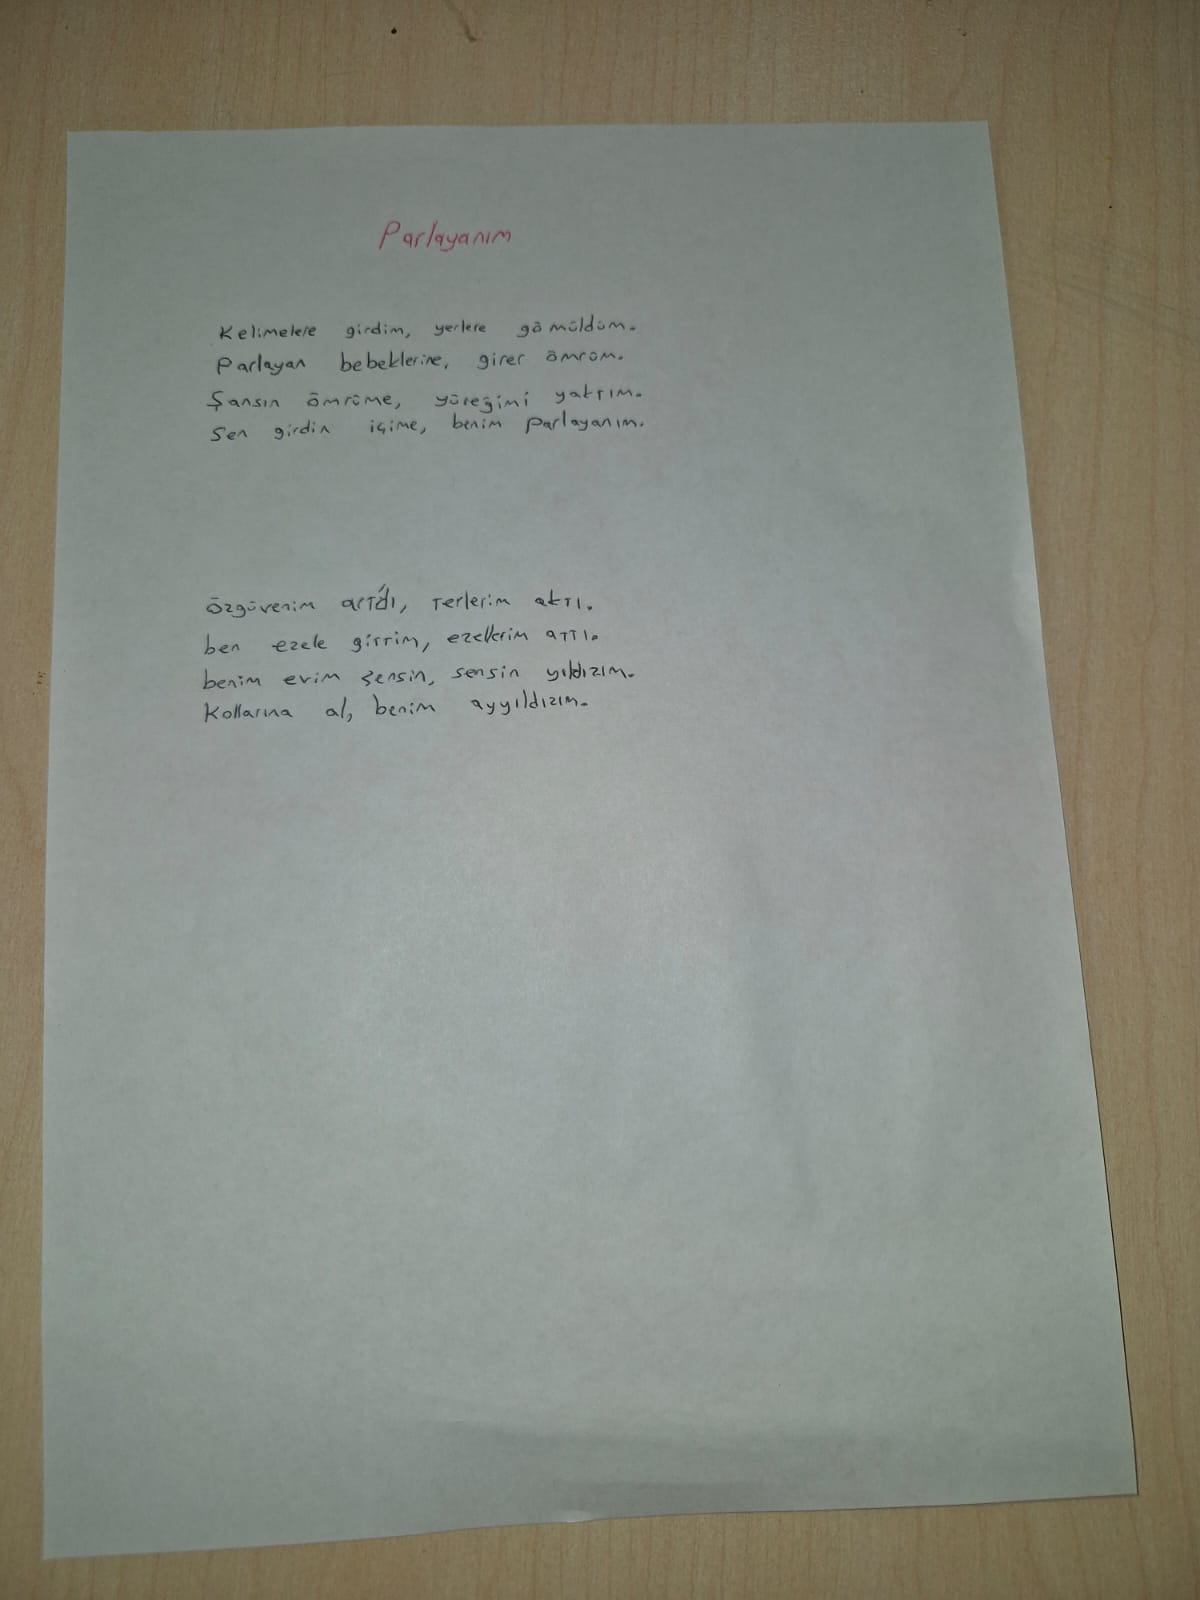 Parlayanım
Kelimelere girdim, yerlere gömüldüm.
Parlayan bebeklerine, girer ömrüm.
Şansın ömrüme, yüreğimi yaktım.
Sen girdin içime, benim parlayanım.
Özgüvenim arttı, terlerim aktı.
ben ezele gittim, ezellerim attı.
benim evim sensin, sensin yıldızım.
Kollarına al, benim ayyıldızım.